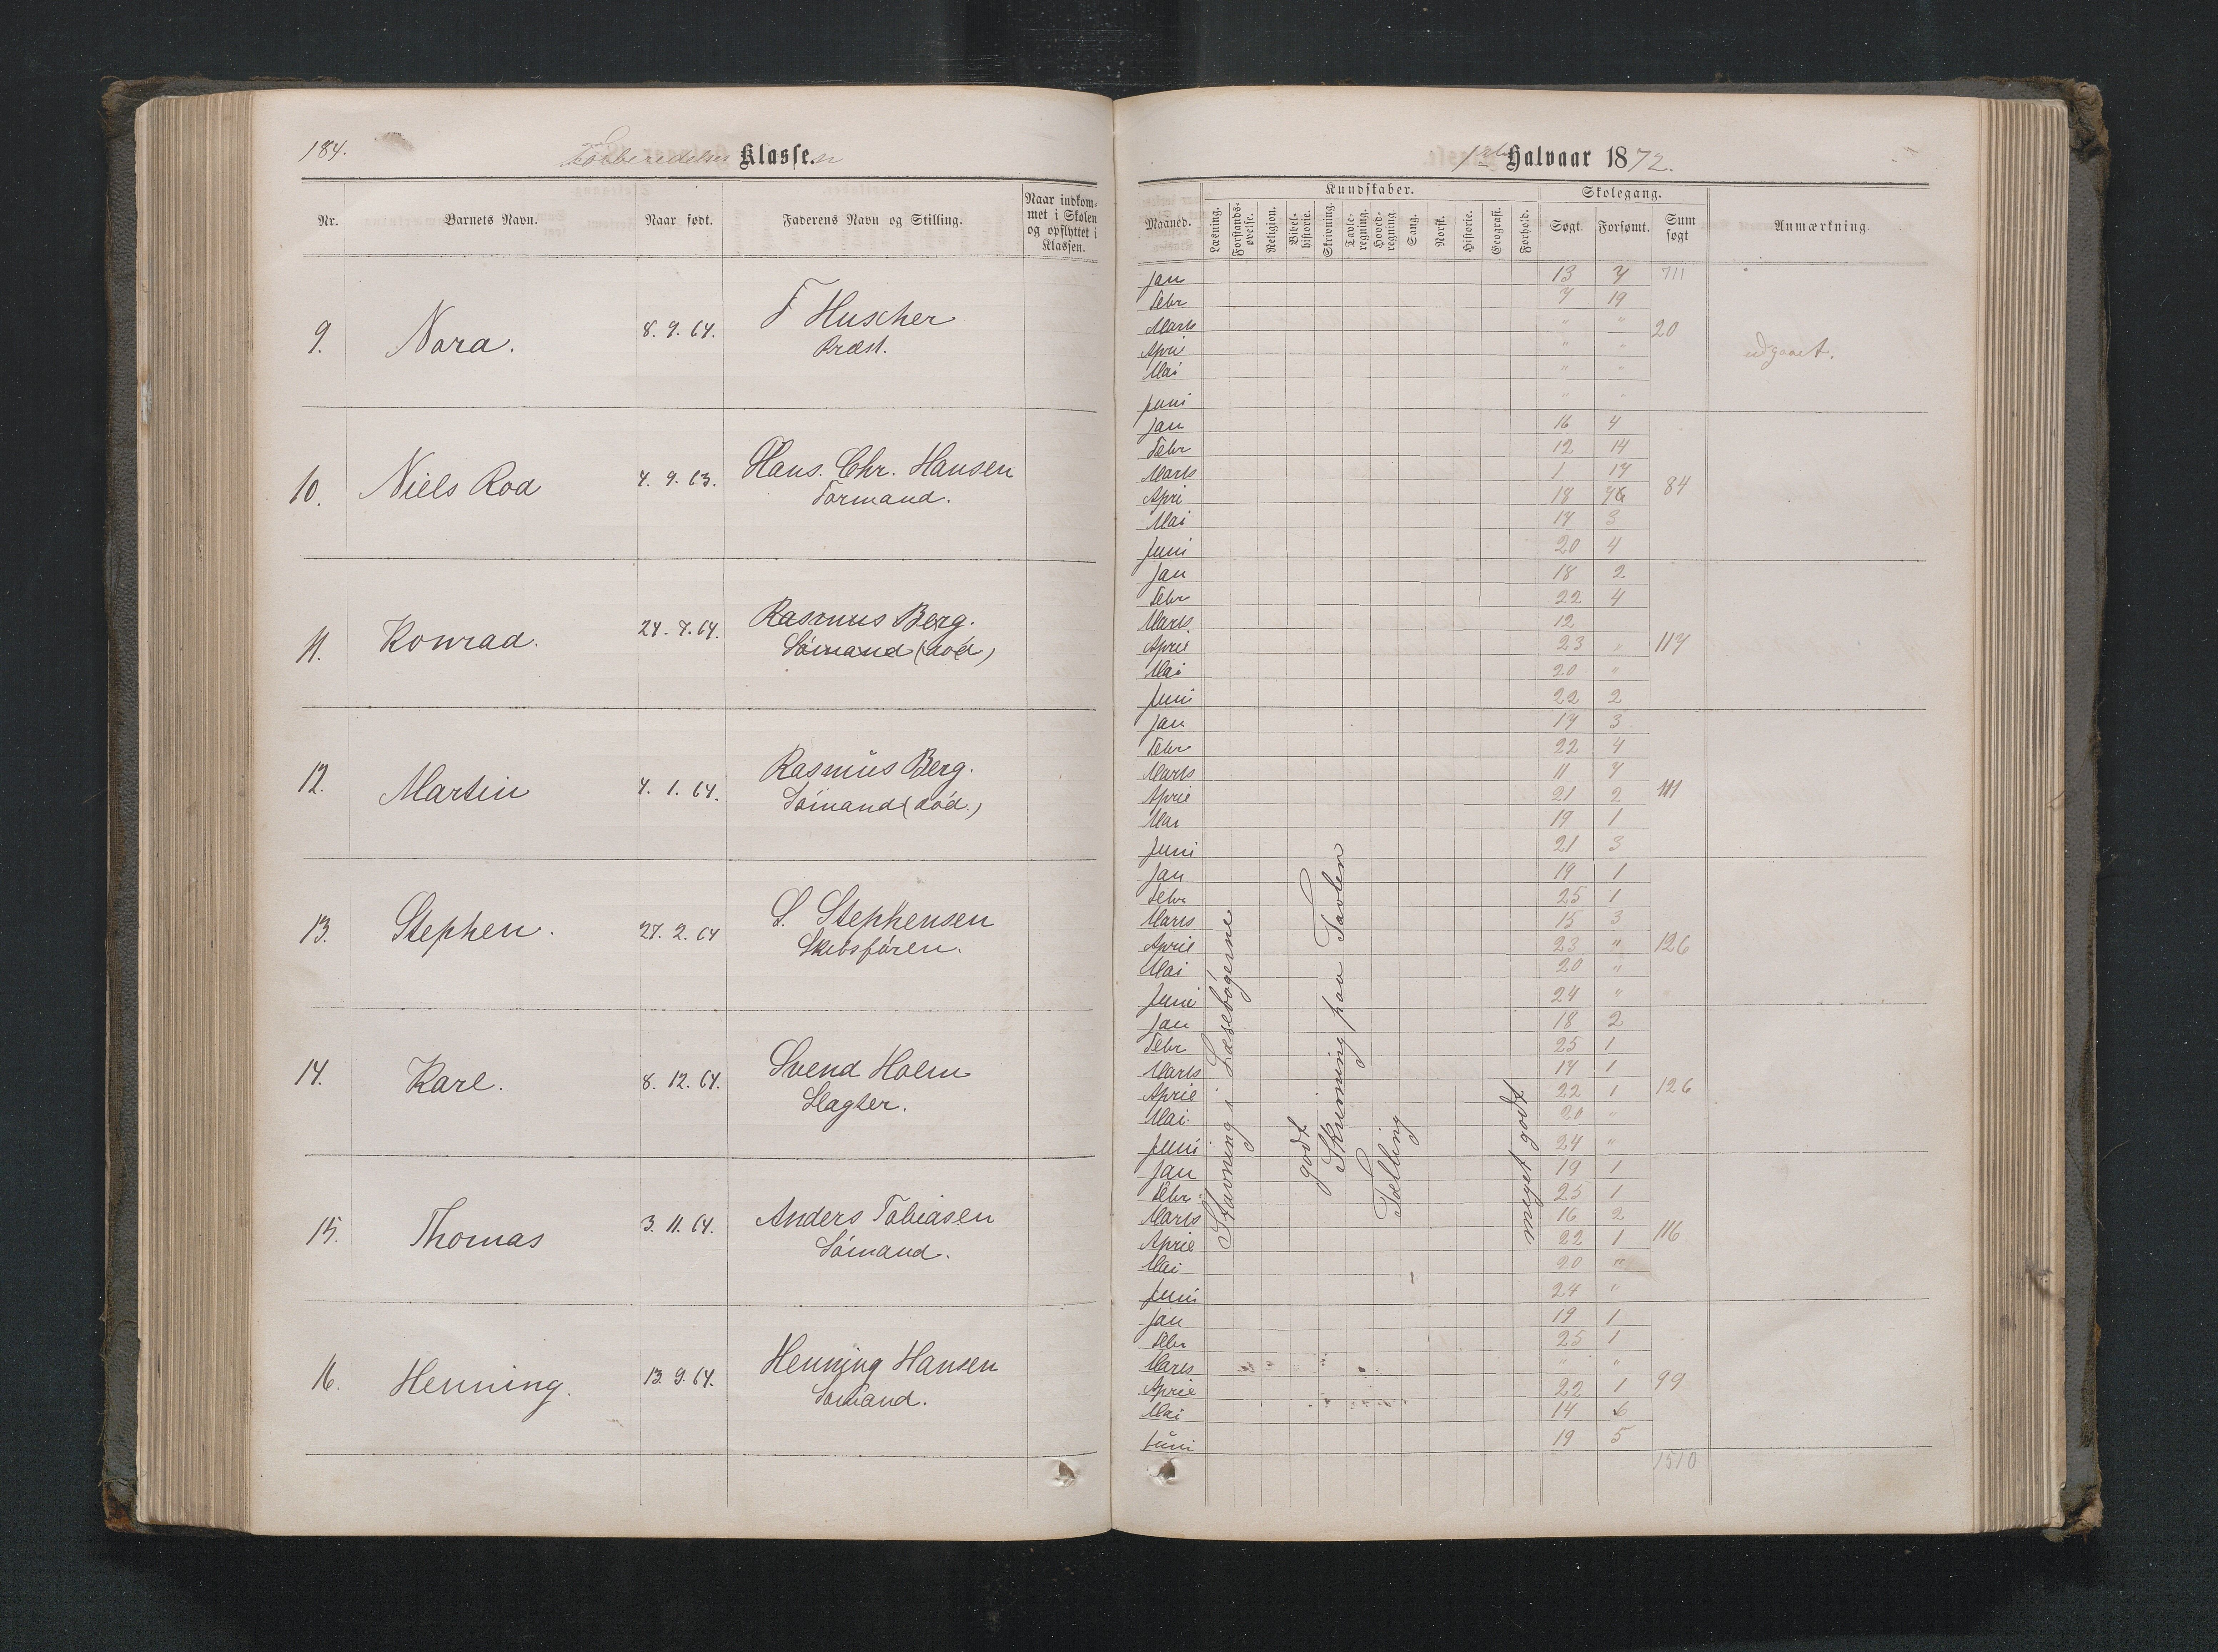 184.
Forberedelses Klassen
Nr.
Barnets Navn.
Naar født.
Faderens Navn og Stilling.
Naar indkom-
met i Skolen
og opflyttet i
Klassen.
9.
Nora.
8. 9. 64.
F Huscher
Præst.
10.
Niels Roa
4. 9. 63.
Hans. Chr. Hansen
Formand.
11.
Konrad.
24. 7. 64.
Rasmus Berg.
Sømand (død)
12.
Martin
4. 1. 64.
Rasmus Berg.
Sømand (død.)
13.
Stephen.
27. 2. 64
S. Stephensen
Skibsføren.
14.
Karl.
8. 12. 64.
Svend Holm
Slagter.
15.
Thomas
3. 11. 64.
Anders Tobiasen
Sømand.
16.
Henning.
13. 9. 64.
Henning Hansen
Sømand.
1ste Halvaar 1872.
Maaned.
Kundskaber.
Læsning.
Forstands-
øvelse.
Religion.
Bibel-
historie.
Skrivning.
Tavle-
regning.
Hoved-
regning
Sang.
Norsk.
Historie.
Geografi.
Forhold.
Skolegang.
Søgt.
Forsømt.
Sum
søgt
Anmærkning
711
Jan 13 7
Febr 7 19
Marts " "
April " "
Mai " "
Juni " "
20
udgaaet.
Jan 16 4
Febr 12 14
Marts 1 17
April 18
Mai 17 3
Juni 20 4
84
Jan 18 2
Febr 22 4
Marts 12
April 23 "
Mai 20 "
Juni 22 2
117
Jan 17 3
Febr 22 4
Marts 11 7
April 21 2
Mai 19 1
Juni 21 3
111
Jan 19 1
Febr 25 1
Marts 15 3
April 23 "
Mai 20 "
Juni 24 "
126
Jan 18 2
Febr 25 1
Marts 17 1
April 22 1
Mai 20 "
Juni 24 "
126
Jan 19 1
Febr 25 1
Marts 16 2
April 22 1
Mai 20 "
Juni 24 "
116
Jan 19 1
Febr 25 1
Marts " "
April 22 1
Mai 14 6
Juni 19 5
99
1510
Stavning i Læsebøgerne
godt
Skrivning paa Tavlen
Tælling
meget godt